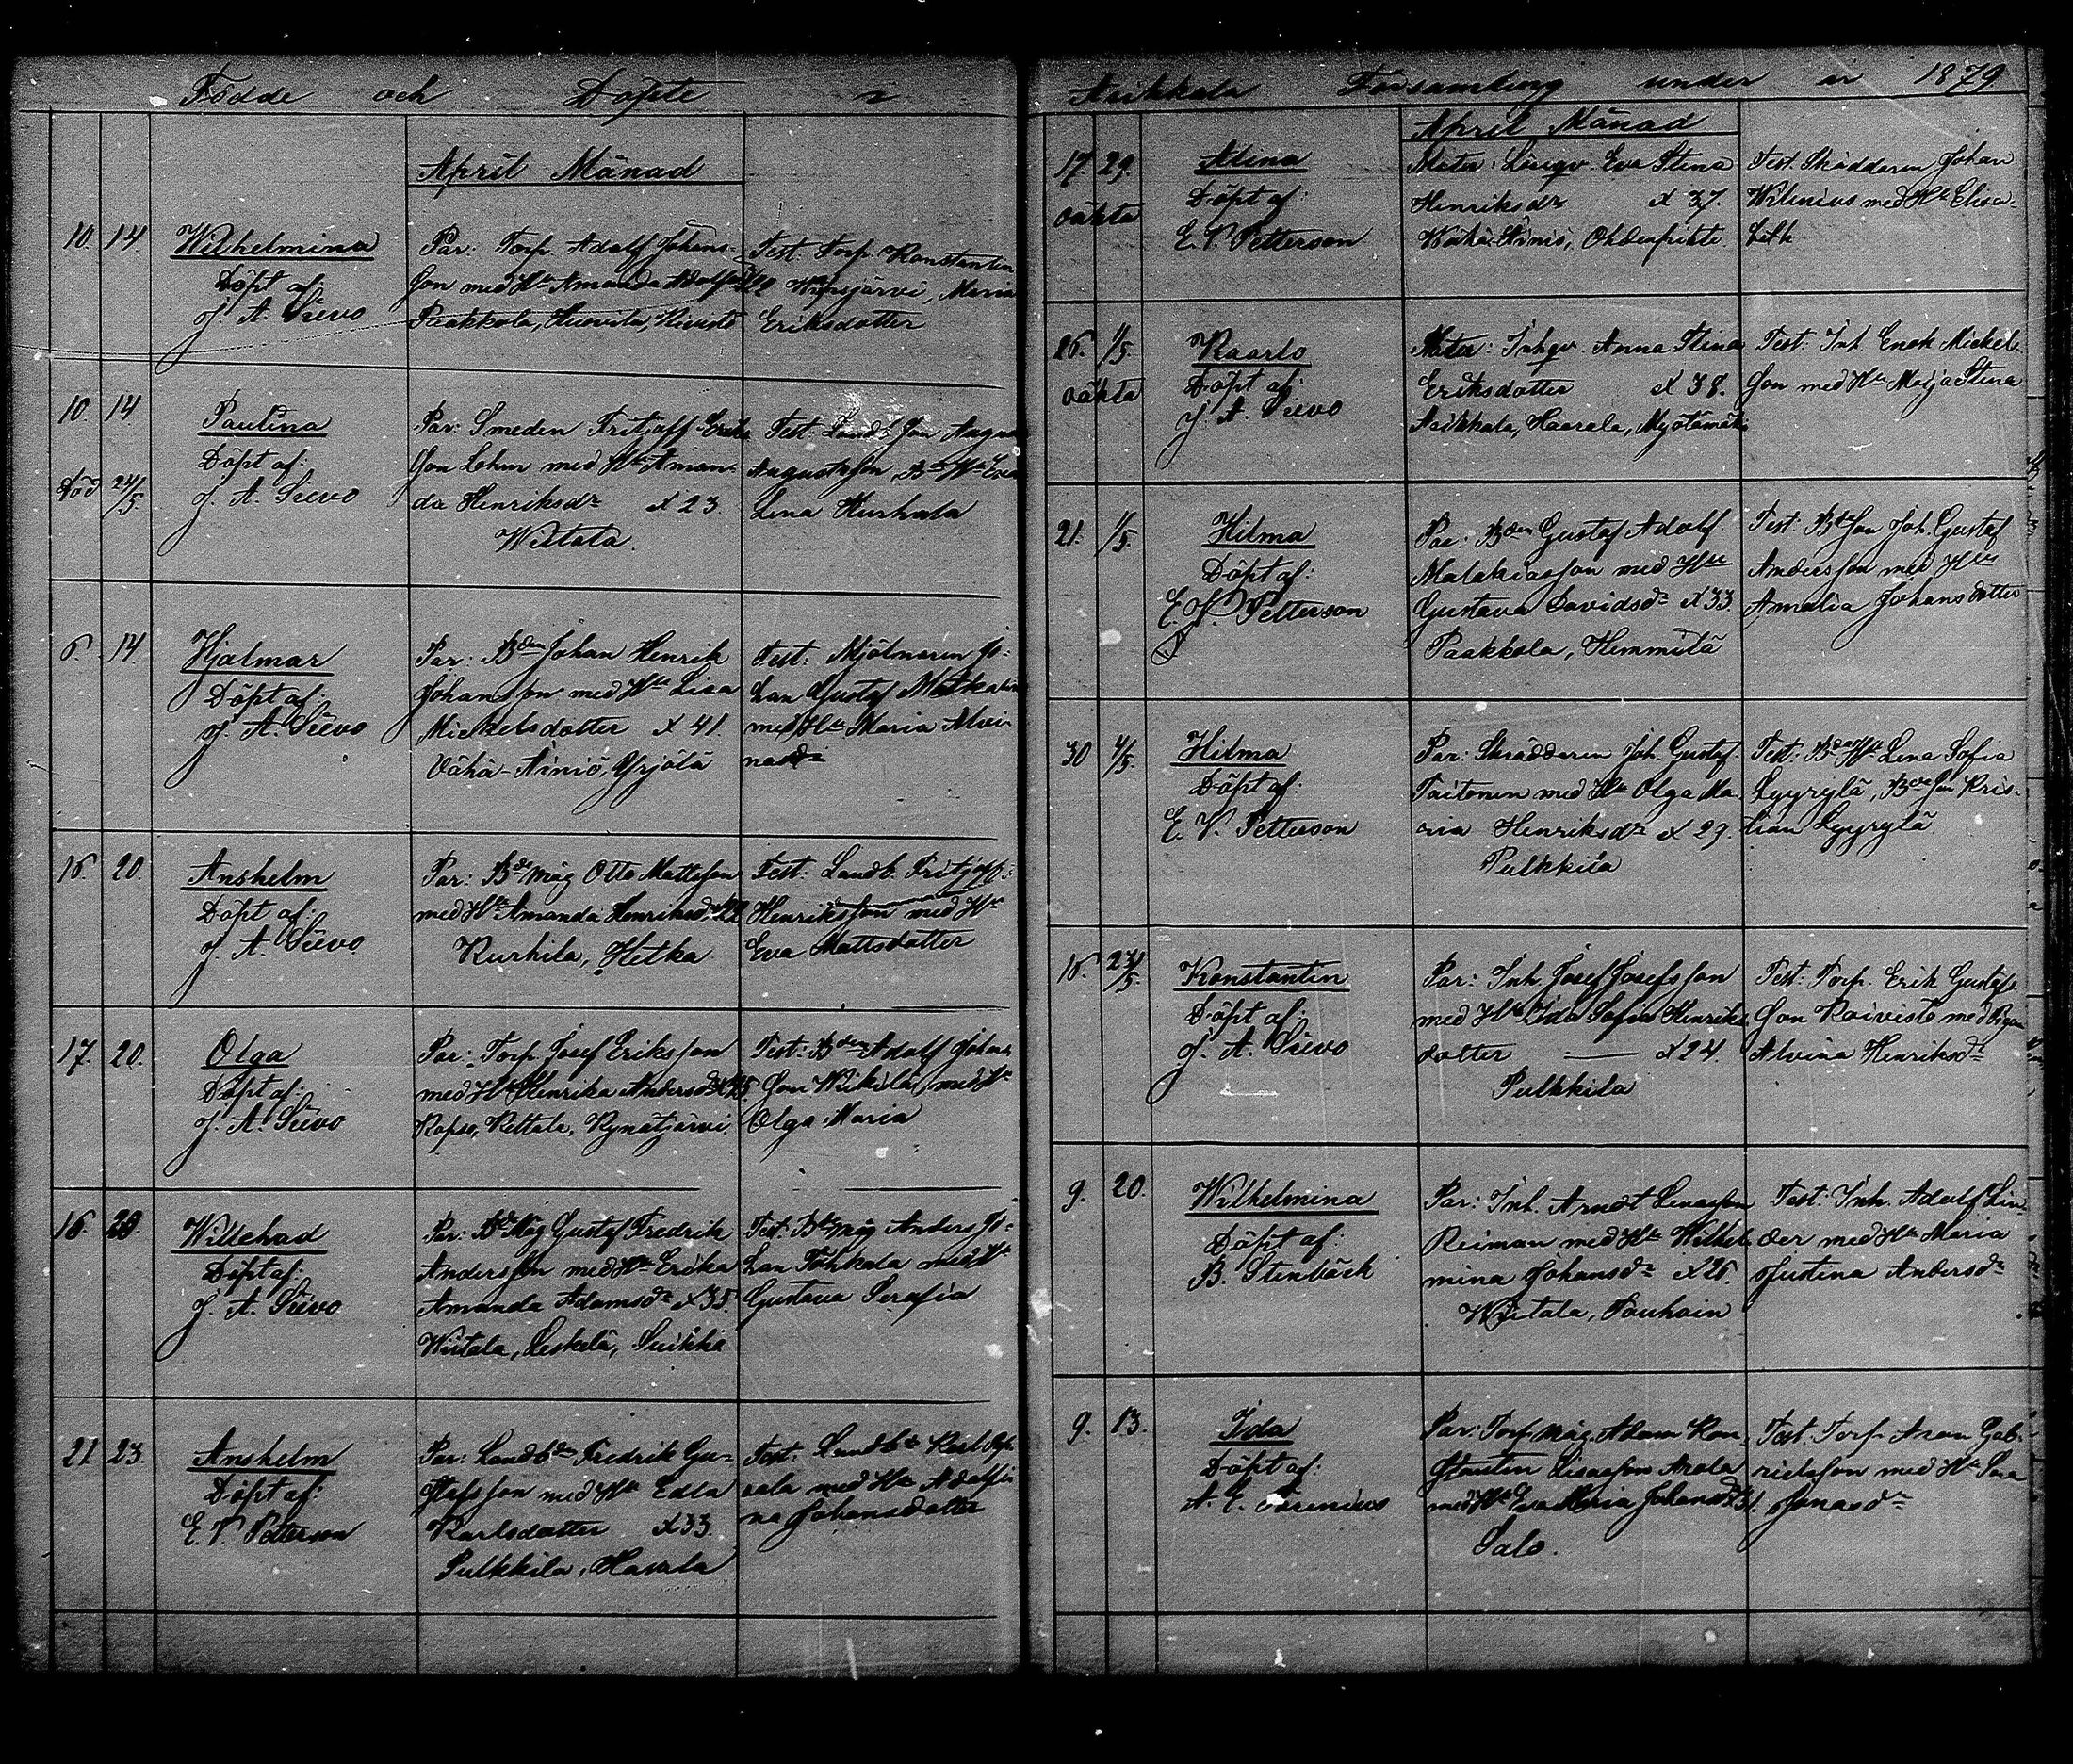 Födde och Döpte i
April Månad
10. 14 Wilhelmina
Döpt af:
J. A. Sievo
Par: Torp. Adolf Johans-
son med Hu Amanda
Paakkola,
Test: Torp. Konstantin
Maria
Eriksdotter
10. 14 Paulina
Död 24/5. Döpt af:
J. A. Sievo
Par: Smeden Fritjoff
son med Hu Aman-
da Henriksdr æt 23
Wiitala.
Test: Landb. son August
Augustsson, Hu Eva
Lena Kurhala
6. 14. Hjalmar
Döpt af:
J. A. Sievo
Par: Bden Johan Henrik
Johansson med Hu Lisa
Mickelsdotter æt 41.
Vähä-Äiniö, Yrjölä
Test: Mjölnaren Jo-
han Gustaf
med Hu Maria Alvi-
nasdr
16. 20. Anshelm
Döpt af:
J. A. Sievo
Par: Bde måg Otto Mattsson
med Hu Amanda Henriksdr
Kurhila, Hetka
Test: Landb. Fritjof
Henriksson med Hu
Eva Mattsdotter
17. 20. Olga
Döpt af:
J. A. Sievo
Par: Torp. Josef Eriksson
med Hu Henrika Andersdr
Kettala,
Test: Bden Adolf Johans
son Wikilä med Hu
Olga Maria
16. 20. Willehad
Döpt af:
J. A. Sievo
Par: Bde Måg Gustaf Fredrik
Andersson med Hu Erika
Amanda Adamsdr æt 35.
Wiitala, Leskelä,
Test: Bde måg Anders Jo-
han med Hu
Gustava Serafia
21 23. Anshelm
Döpt af:
E. V. Petterson
Par: Landb. Fredrik Gu-
stafsson med Hu Edla
Karlsdotter æt 33.
Pulkkila,
Test: Landb.
med Hu Adolfi-
na Johansdotter
Asikkala Församling under år 1879
April Månad
17. 29. Alina
oäkta Döpt af
E. V. Petterson
Mater: Eva Stina
Henriksdr æt 37.
Wähä-Äiniö,
Test. Skräddaren Johan
Wilenius med Hu Elisa-
beth
26. 1/5. Kaarlo
oäkta Döpt af:
J. A. Sievo
Mater: Inhqv. Anna Stina
Eriksdotter æt 38.
Asikkala, Haarala,
Test: Inh. Enok Mickel-
son med Hu Maja Stina
21. 1/5. Hilma
Döpt af:
E. V. Petterson
Par: Bden Gustaf Adolf
Malakiasson med Hu
Gustava Davidsdr æt 33.
Paakkola, Hemmilä
Test: Bde son Joh. Gustaf
Andersson med Hu
Amalia Johansdotter
30 4/5. Hilma
Döpt af:
E. V. Petterson
Par: Skräddaren Joh. Gustaf
med Hu Olga Ma-
ria Henriksdr æt 29.
Pulkkila
Test: Bde Hu Lena Sofia
Lyyrylä, Bde son Kris-
tian Lyyrylä.
16. Konstantin
Döpt af:
J. A. Sievo
Par: Inh. Josef Josefsson
med Hu Ida Sofia Henriks
dotter — æt 24.
Pulkkila
Test: Torp. Erik Gustafs
son Koivisto med
Alvina Henriksdr
9. 20. Wilhelmina
Döpt af:
B. Stenbäck
Par: Inh. Arndt
Reiman med Hu Wilhel-
mina Johansdr æt 26.
Wiitala,
Test: Inh. Adolf Lin-
der med Hu Maria
Justina Andersdr
9. 13. Ida
Döpt af:
Par: Torp. måg Adam Kon-
stantin
med Hu Eva Maria Johansdr
Salo.
Test: Torp. Gab-
rielsson med Hu
Jonasdr